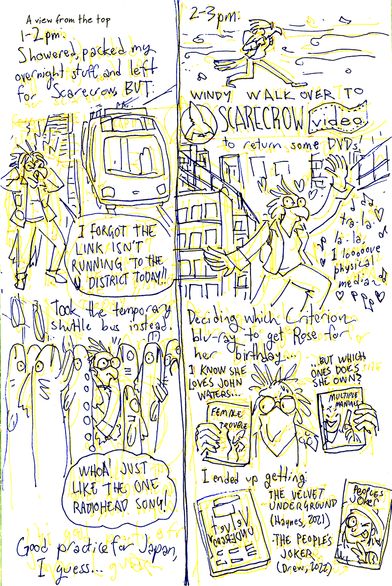 A view from the top
1-2pm:
Showered, packed my
overnight stuff, and left
for Scarecrow, BUT:
I FORGOT THE
LINK ISN'T
RUNNING TO THE
U DISTRICT TODAY!!
Took the temporary
shuttle bus instead.
WHOA, JUST
LIKE THE ONE
RADIOHEAD SONG!
Good practice for Japan,
I guess...
2-3pm:
WINDY WALK OVER TO
SCARECROW video
to return some DVDs!
da
tra-la
la-la,
I looooove
physical
media
Deciding which Criterion
blu-ray to get Rose for
her birthday...
I KNOW SHE
LOVES JOHN
WATERS...
...BUT WHICH
ONES DOES
SHE OWN?
FEMALE
TROUBLE
MULTIPLE
MANIACS
I ended up getting:
THE VELVET
UNDERGROUND
(Haynes, 2021)
-THE PEOPLE'S
JOKER
(Drew, 2022)
PEOPLE'S
JOKER